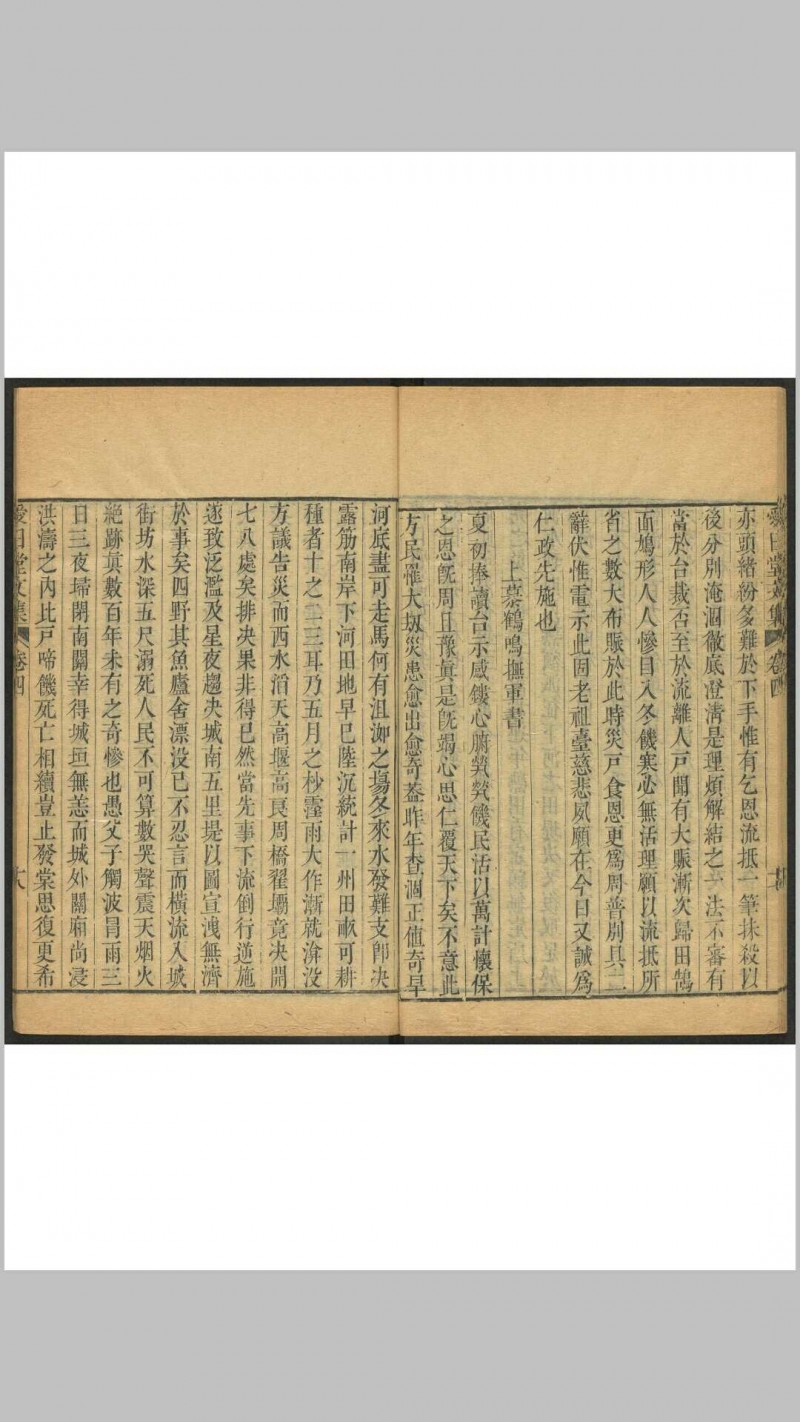 愛日堂文集 卷四
亦頭緒紛多難於下手惟有乞恩流抵一筆抹殺以
後分別淹涸徹底澄淸是理煩解結之一法不審有
當於台裁否至於流離人戸開有大賑漸次歸田鵠
面鳩形人人慘目入冬饑寒必無活理願以流抵所
省之數大布賑於此時災戸食恩更爲周普別具二
辭伏惟電示此固老祖臺慈悲夙願在今日又誠爲
仁政先施也
上慕鶴鳴撫軍書
夏初捧讀台示感鏤心腑煢煢饑民活以萬計懷保
之恩旣周且豫眞是旣竭心思仁覆天下矣不意此
方民罹大刼災患愈出愈奇葢昨年查涸正値奇旱
河底盡可走馬何有沮洳之塲冬來水發難支卽决
露筋南岸下河田地早已陸沉統計一州田畝可耕
種者十之二三耳乃五月之杪霪雨大作漸就渰没
方議告災而西水滔天高堰高良周橋翟壩竟决開
七八處矣排决果非得已然當先事下流倒行逆施
遂致泛濫及星夜趨决城南五里堤以圖宣洩無濟
於事矣四野其魚廬舍漂没已不忍言而橫流入城
街坊水深五尺溺死人民不可算數哭聲震天烟火
絶跡眞數百年未有之奇慘也愚父子觸波冒雨三
日三夜埽閉南關幸得城垣無恙而城外關廂尚浸
洪濤之内比戸啼饑死亡相續豈止發棠思復更希
愛日堂文集 卷四